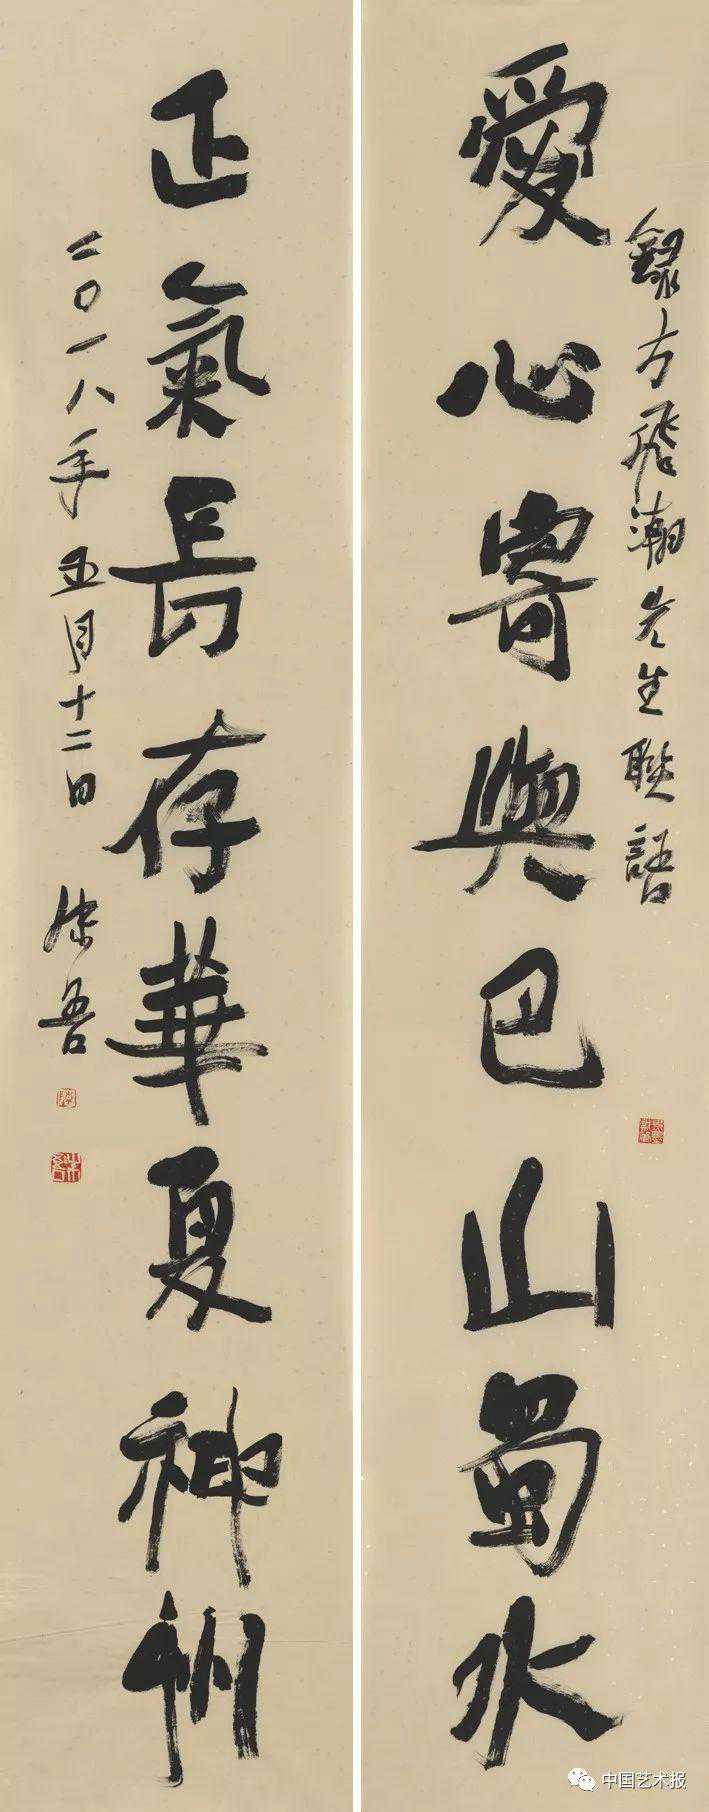 錄方飛潮先生聯語
愛心寄與巴山蜀水
正氣長存華夏神州
二〇一八年五月十二日
中国艺术报